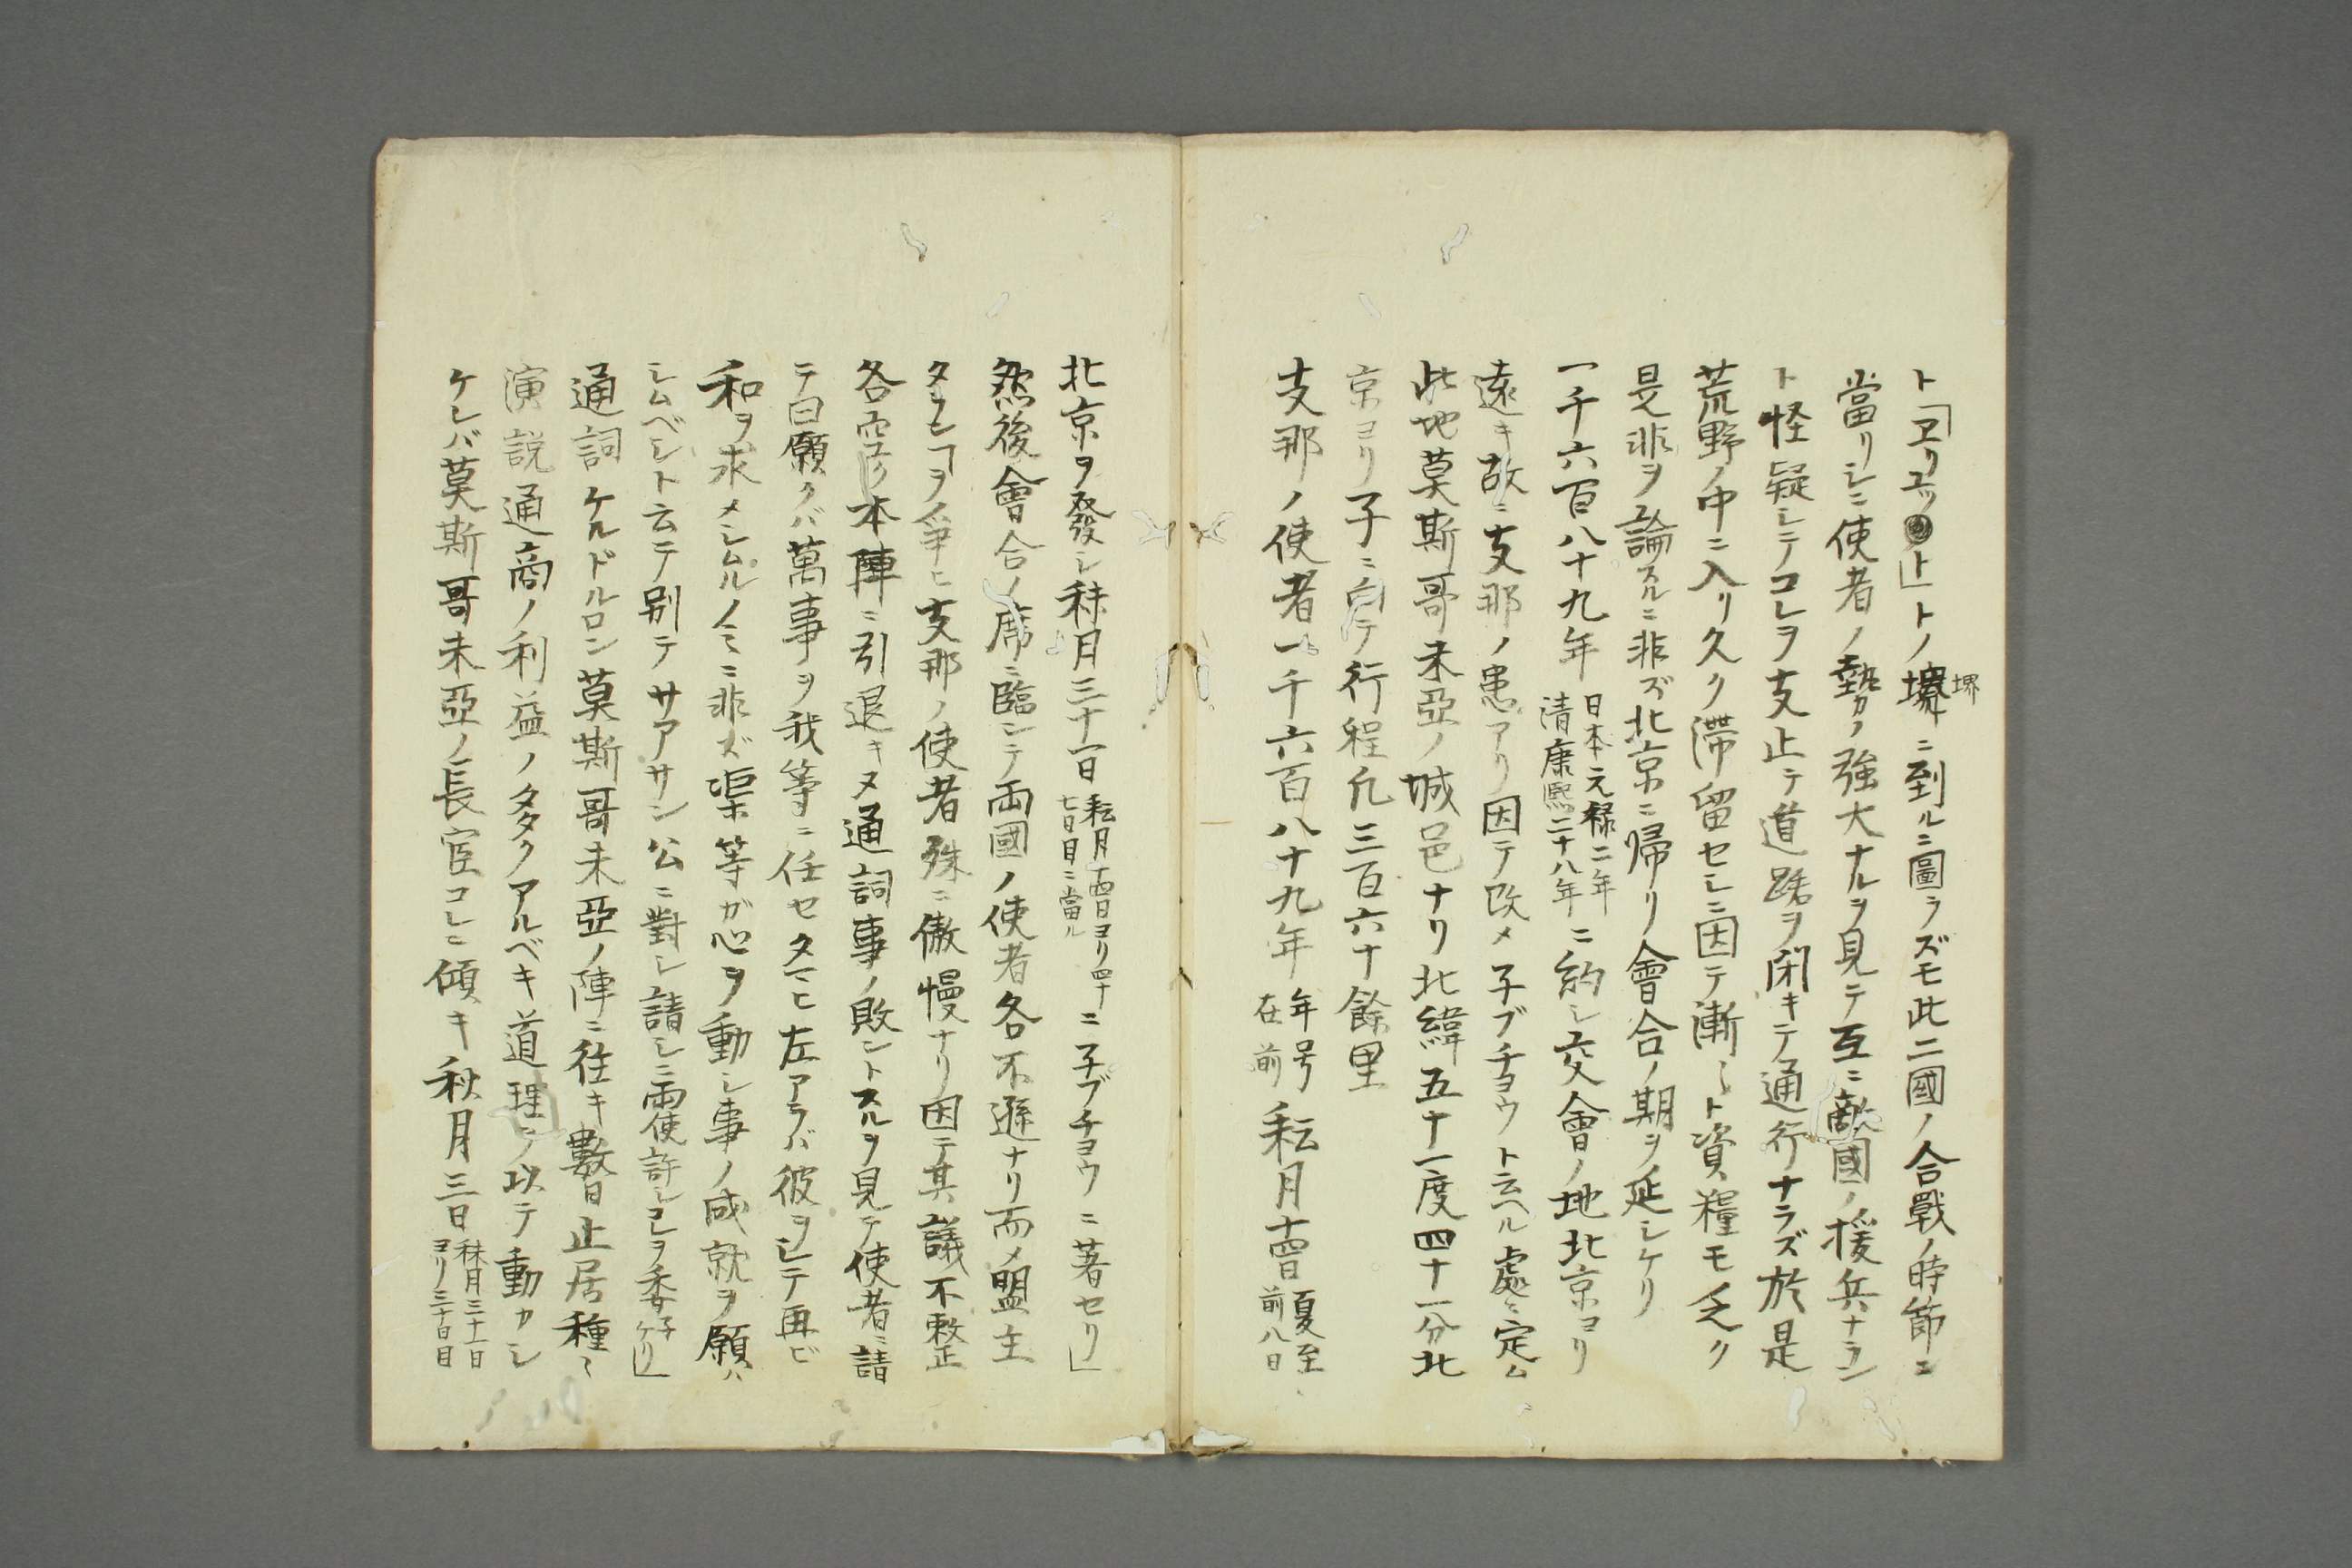 ト「ヱリユツト」トノ壃堺ニ到ルニ圖ラズモ此二國ノ合戰ノ時節ニ
當リシニ使者ノ勢力ノ強大ナルヲ見テ互ニ敵國ノ援兵ナラン
ト怪疑シテコレヲ支止テ道路ヲ閉キテ通行ナラズ於是
荒野ノ中ニ入リ久ク滞留セシニ因テ漸〻ト資糧モ乏ク
是非ヲ論スルニ非ズ北京ニ帰リ會合ノ期ヲ延シケリ
一千六百八十九年日本元禄二年清康熙二十八年ニ約シ交會ノ地北京ヨリ
遠キ故ニ支那ノ患アリ因テ改メ子ブチヨウト云ヘル處ニ定ム
此地莫斯哥未亞ノ城邑ナリ北緯五十一度四十一分北
京ヨリ子ニ向テ行程凢三百六十餘里
支那ノ使者一千六百八十九年年号在前耘月十四日夏至前八日
北京ヲ發シ秣月三十一日耘月十四日ヨリ四十七日目ニ當ルニ子ブチヨウニ著セリ」
然後會合ノ席ニ臨ンテ両國ノ使者各不遜ナリ而〆盟主
タランヿヲ爭ヒ支那ノ使者殊ニ傲慢ナリ因テ其議不敕正
各空ク本陣ニ引退キヌ通詞事ノ敗ントスルヲ見テ使者ニ請
テ曰願クバ萬事ヲ我等ニ任セタマヒ左アラバ彼ヲシテ再ビ
和ヲ求メシムルノミニ非ズ渠等ガ心ヲ動シ事ノ成就ヲ願ハ
シムベシト云テ別テサアサン公ニ對シ請シニ両使許シコレヲ委子ケリ」
通詞ケルドルロン莫斯哥未亞ノ陣ニ徃キ數日止居種〻
演説通商ノ利益ノ多クアルベキ道理ヲ以テ動カシ
ケレバ莫斯哥未亞ノ長宦コレニ傾キ秋月三日秣月三十一日ヨリ三十日目